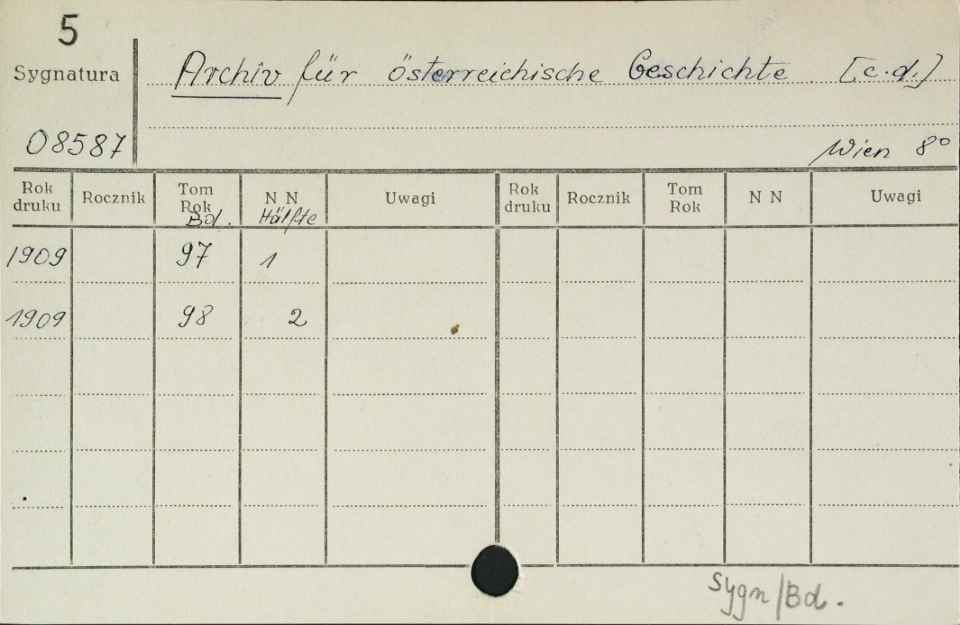 5
Sygnatura Archiv für österreichische Geschichte [c.d.]
08587 Wien 8°
Rok druku Rocznik Tom Rok Bd. N N Hälfte Uwagi Rok druku Rocznik Tom Rok N N Uwagi
1909 97 1
1909 98 2
Sygn/Bd.